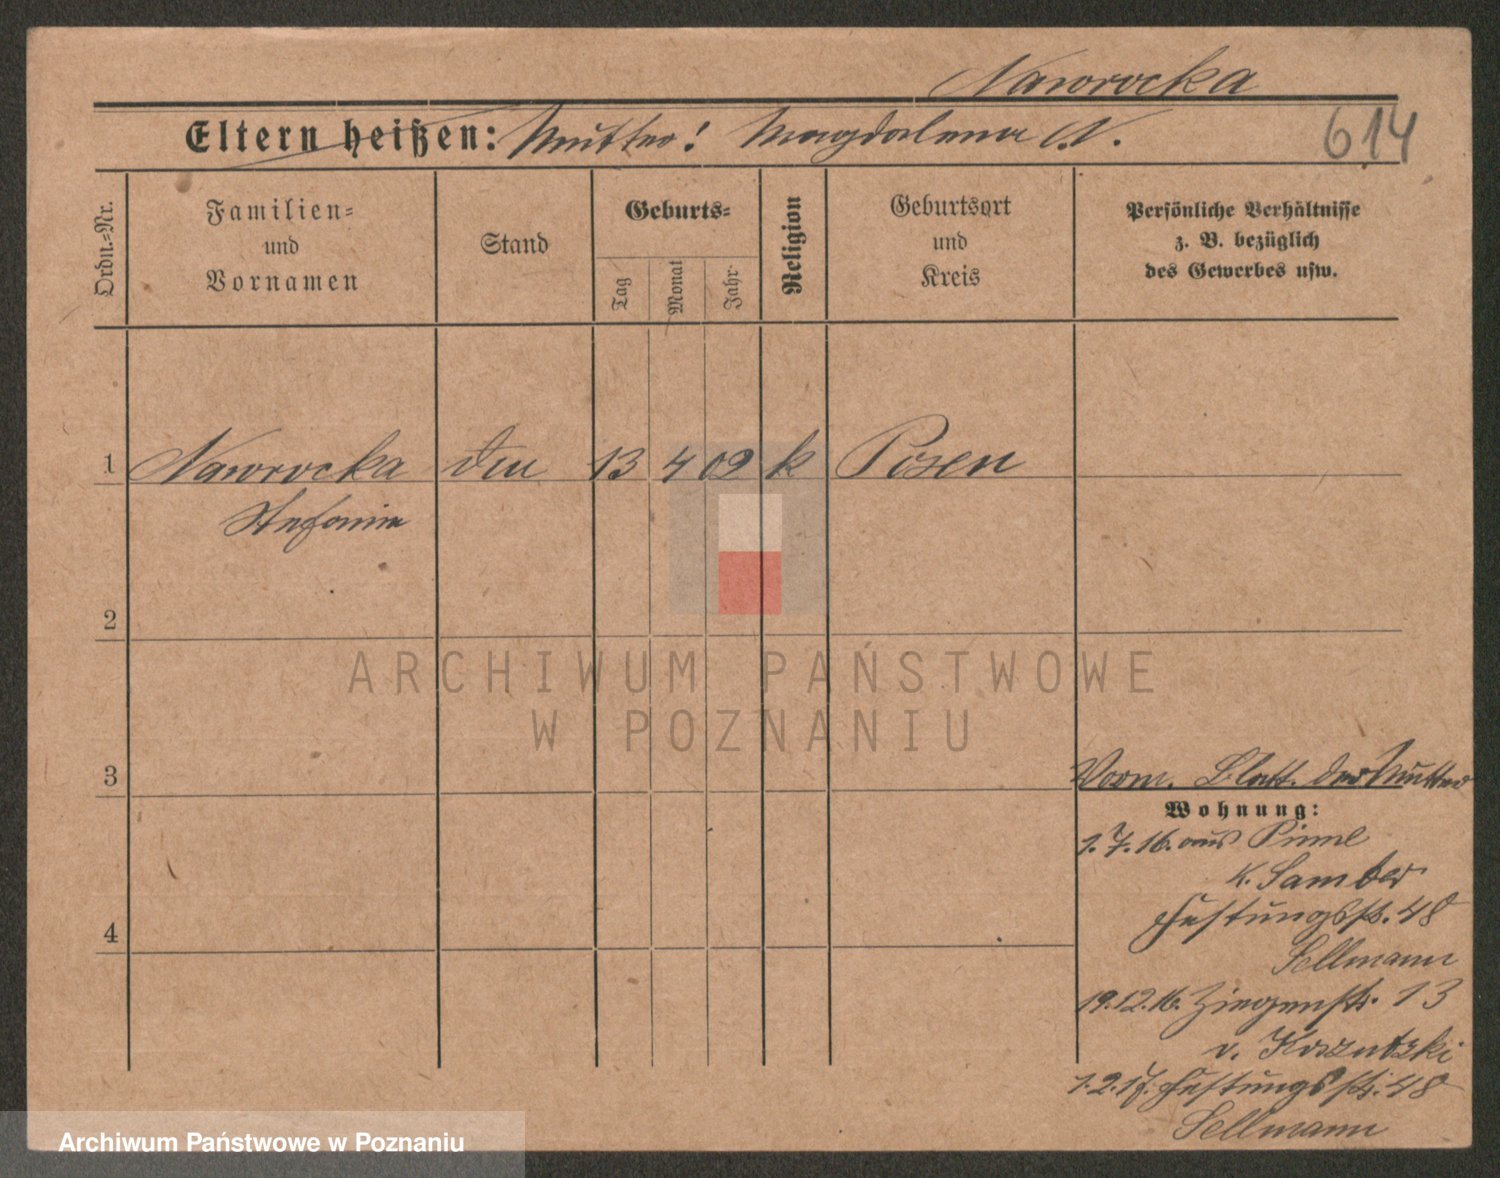 Nawrocka
Eltern heißen: Mutter: Magdalena N.
614
Ordn.=Nr.
Familien=
und
Vornamen
Stand
Geburts=
Tag
Monat
Jahr
Religion
Geburtsort
und
Kreis
Persönliche Verhältnisse
z. B. bezüglich
des Gewerbes usw.
1 Nawrocka 13 4 02 k Posen
Stefania
2
ARCHIWUM PAŃSTWOWE
W POZNANIU
3
Vorm. Blatt. der Mutter
Wohnung:
1.7.16. aus Pinne
K. Samter
Festungsstr. 48
Sellmann
4
19.12.16. Ziegenstr. 13
v. Koszutski
1.2.17. Festungsstr. 48
Sellmann
Archiwum Państwowe w Poznaniu